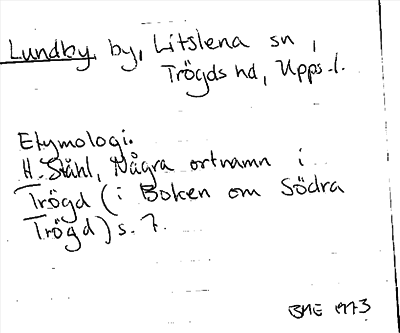 Lundby, by, Litslena sn,
Trögds hd, Upps. l.
Etymologi.
H. Ståhl, Några ortnamn i
Trögd (i Boken om Södra
Trögd) s. 7.
1973